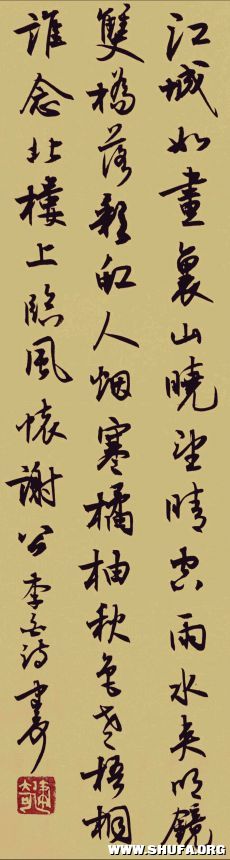 江城如畫裏山曉望晴空雨水夾明鏡
雙橋落彩虹人烟寒橘柚秋色老梧桐
誰念北樓上臨風懷謝公李白詩
WWW.SHUFA.ORG